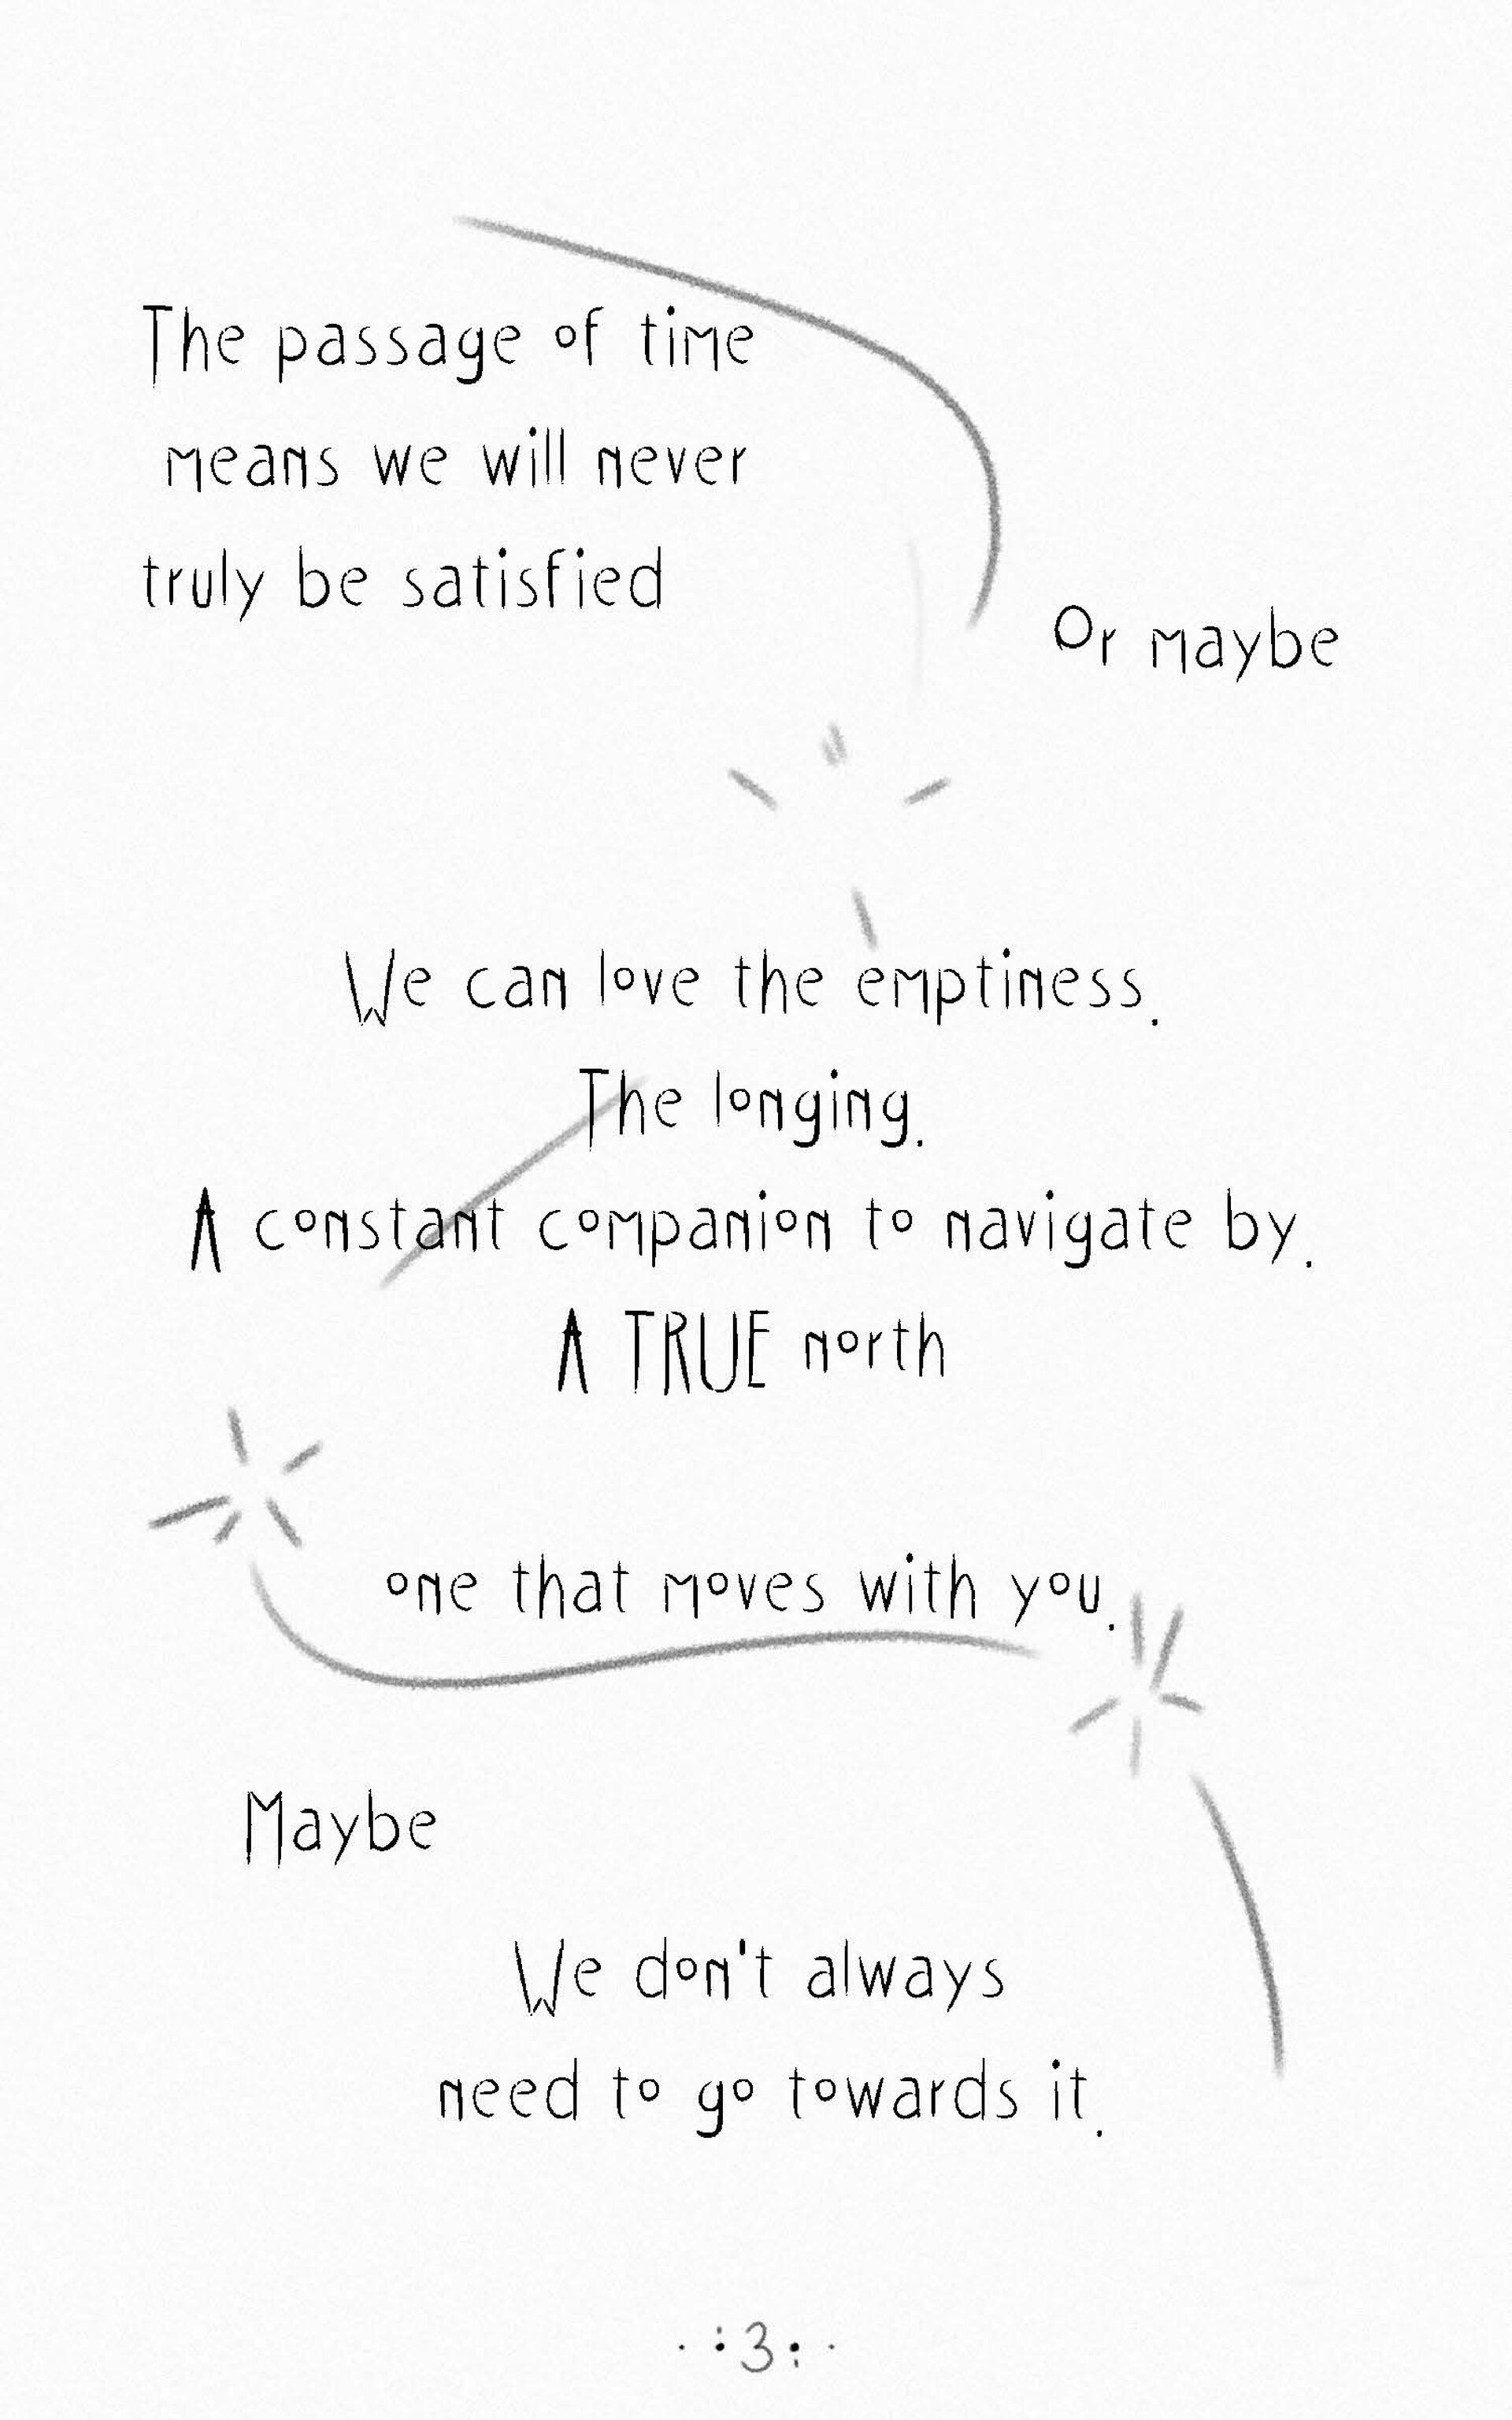 The passage of time
means we will never
truly be satisfied
Or maybe
We can love the emptiness.
The longing.
A constant companion to navigate by.
A TRUE north
one that moves with you.
Maybe
We don't always
need to go towards it.
3